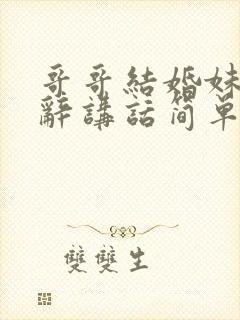 哥哥結婚妹
辭講話简单
雙雙生